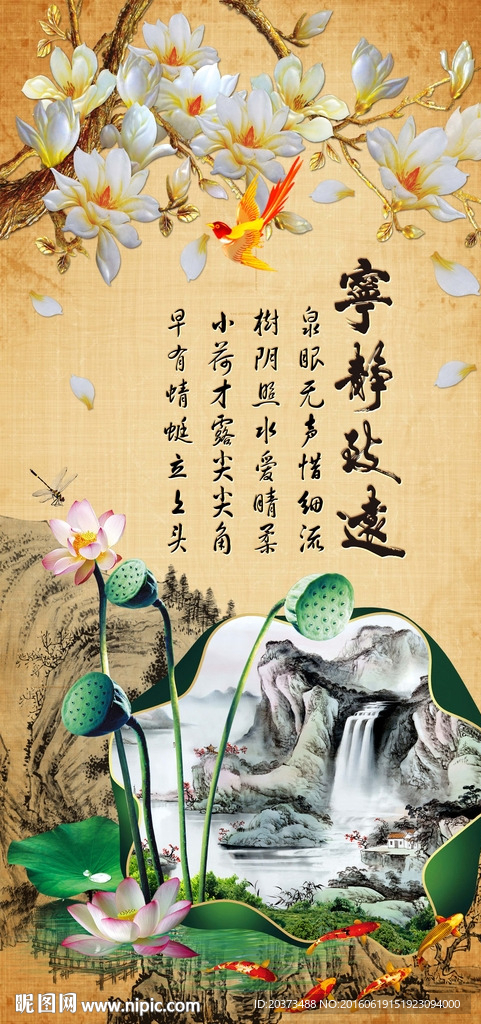 寧靜致遠
泉眼无声惜细流
樹阴照水爱晴柔
小荷才露尖尖角
早有蜻蜓立上头
昵图网 www.nipic.com
ID:20373488 NO:20160619151923094000